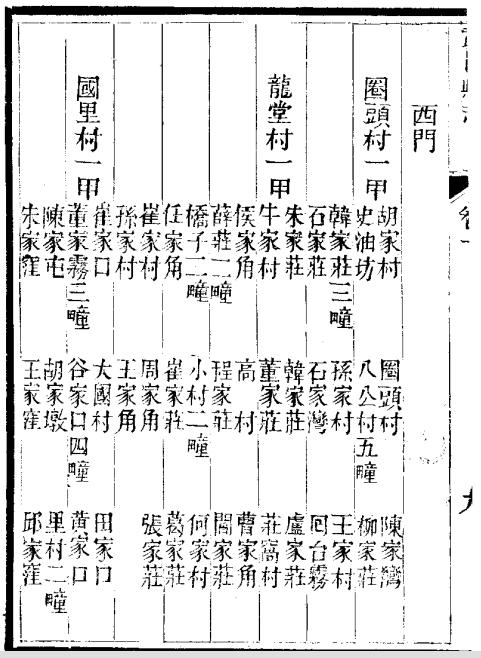 西門
圈頭村一甲
胡家村 圈頭村 陳家灣
史油坊 八公村五疃 柳家莊
韓家莊三疃 孫家村 王家村
石家莊 石家灣 回台霧
龍堂村一甲
朱家莊 韓家莊 盧家莊
牛家村 董家莊 莊窩村
侯家角 高村 曹家角
薛莊二疃 程家莊 閻家莊
橋子二疃 小村二疃 何家村
任家角 崔家莊 葛家莊
崔家村 周家角 張家莊
孫家村 王家角
國里村一甲
崔家口 大圈村 田家口
董家霧三疃 谷家口四疃 黃家口
陳家屯 胡家墩 里村二疃
朱家窪 王家窪 邱家窪